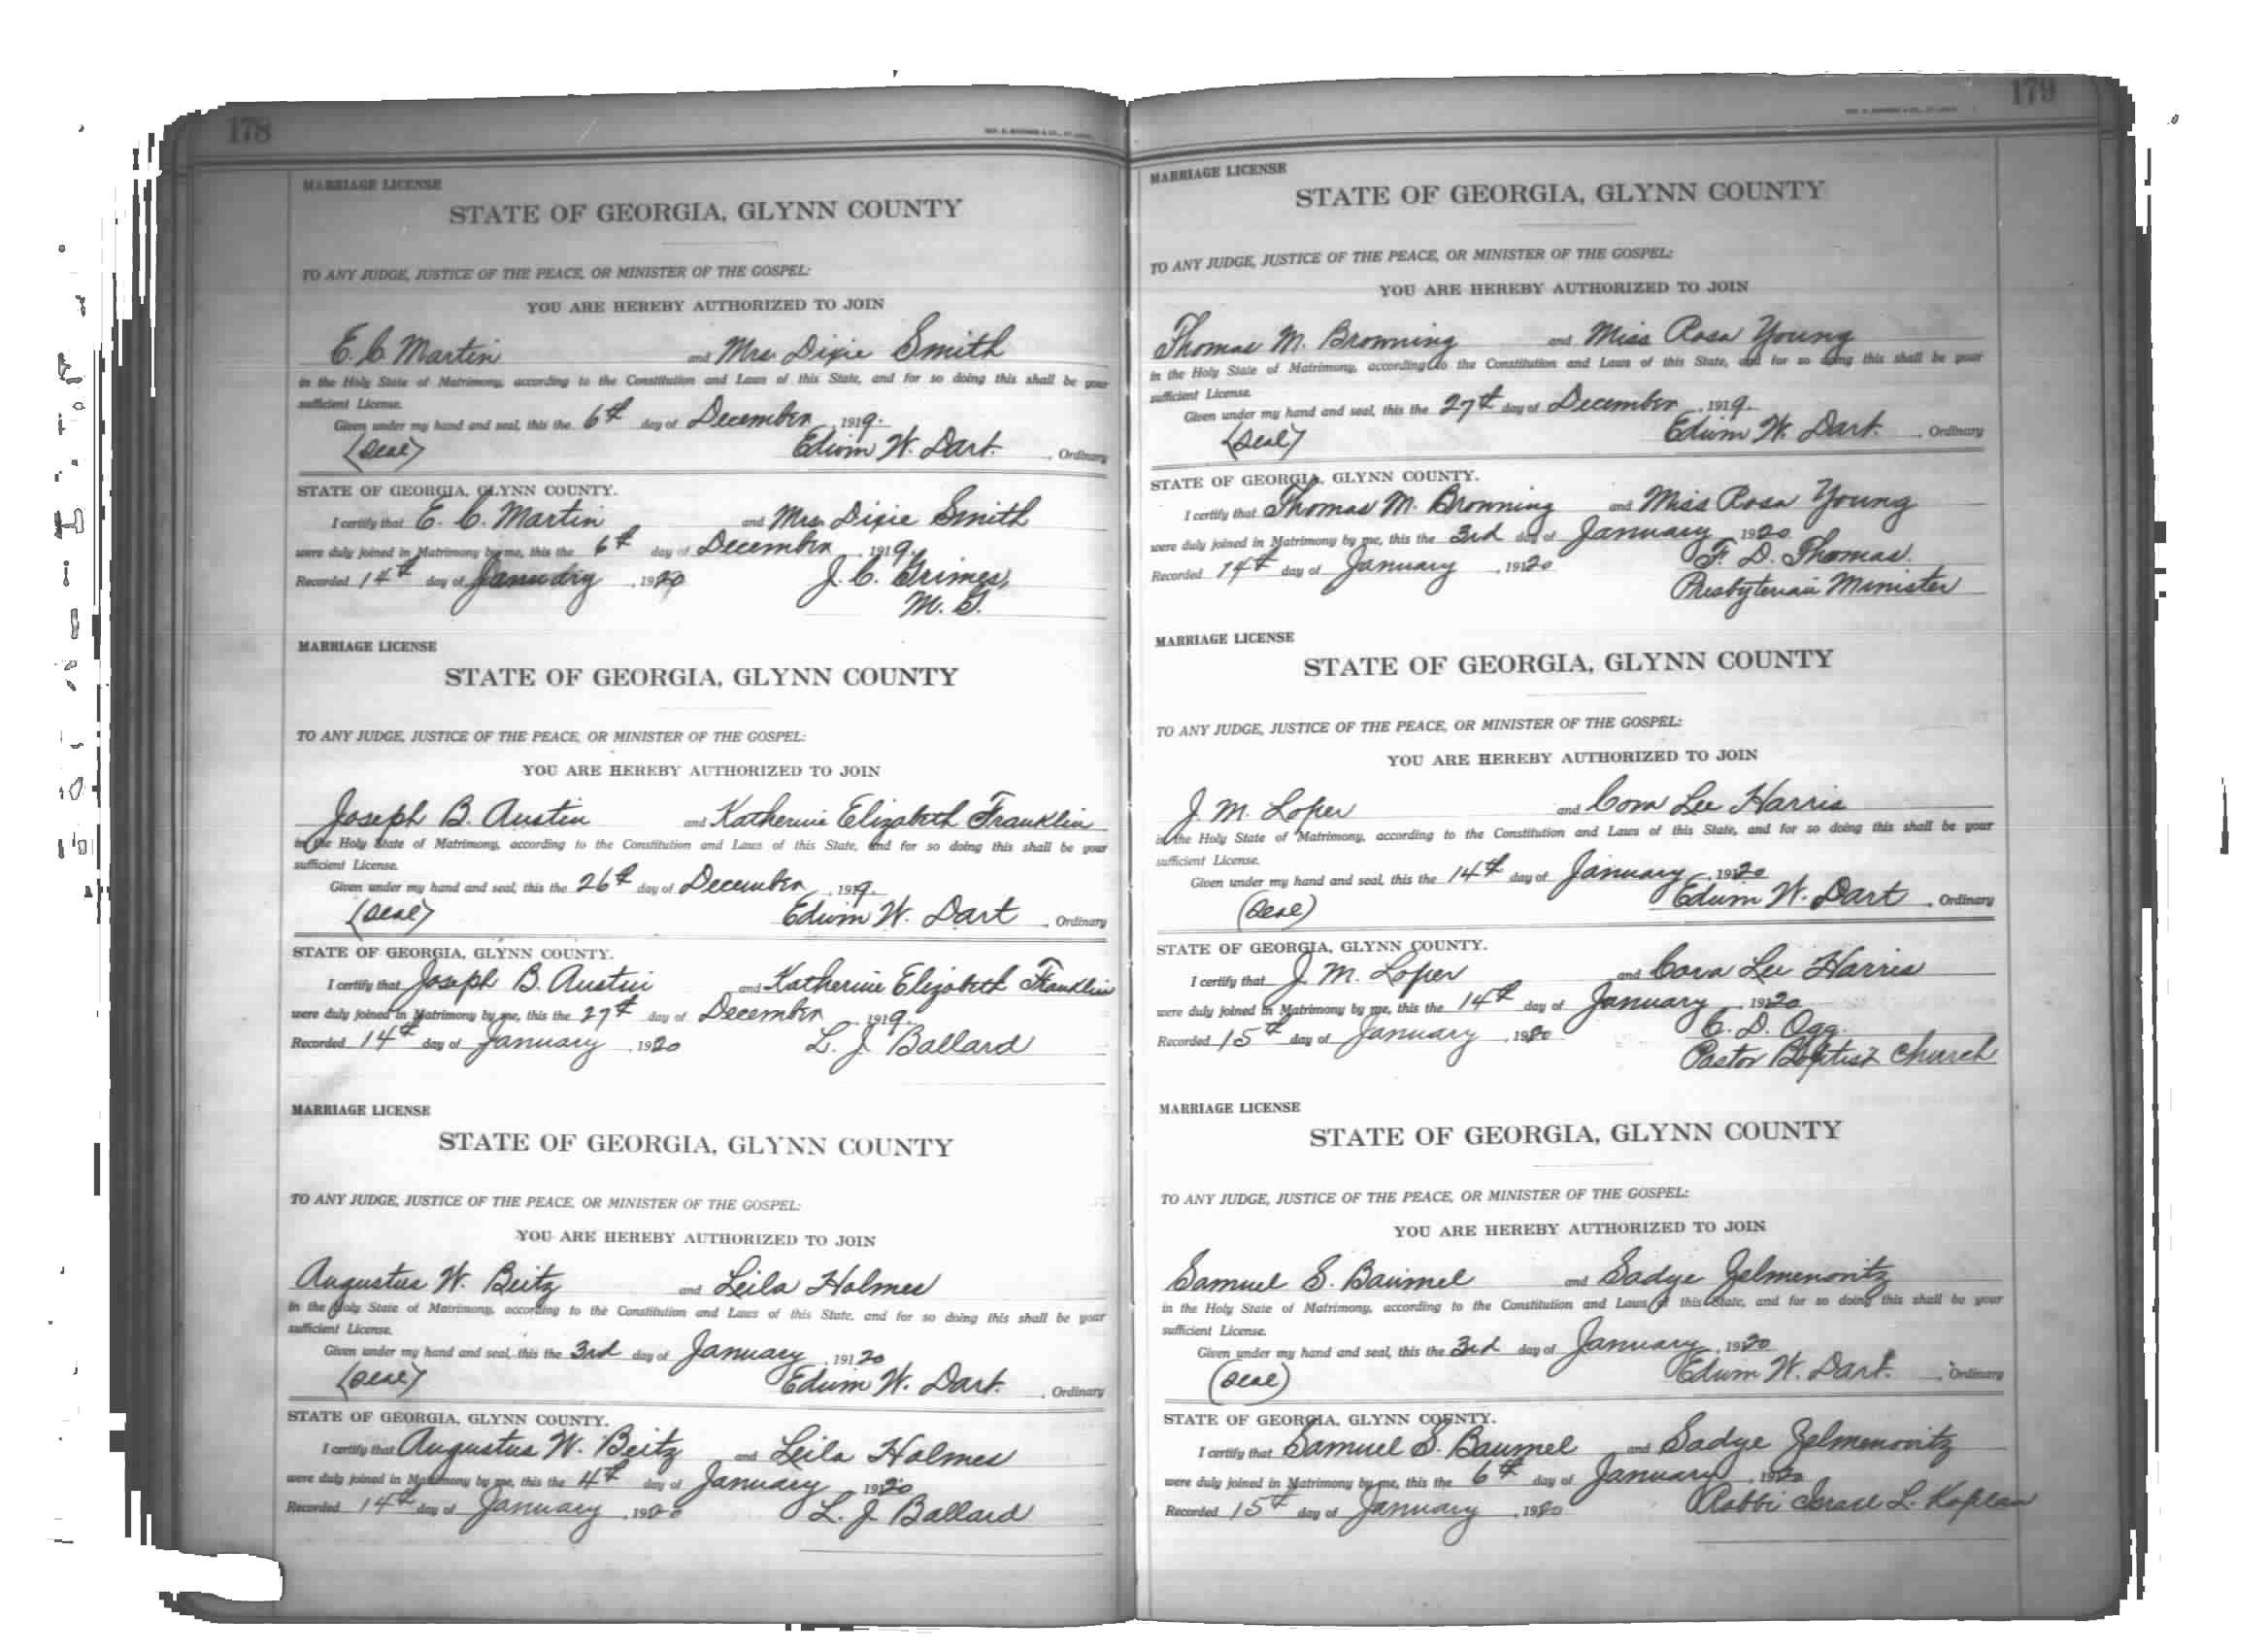 178
MARRIAGE LICENSE
STATE OF GEORGIA, GLYNN COUNTY
TO ANY JUDGE, JUSTICE OF THE PEACE, OR MINISTER OF THE GOSPEL:
YOU ARE HEREBY AUTHORIZED TO JOIN
E. C. Martin and Mrs. Dixie Smith
in the Holy State of Matrimony, according to the Constitution and Laws of this State, and for so doing this shall be your
sufficient License.
Given under my hand and seal, this the 6th day of December, 1919.
(Seal) Edwin W. Dart. , Ordinary
STATE OF GEORGIA, GLYNN COUNTY.
I certify that E. C. Martin and Mrs. Dixie Smith
were duly joined in Matrimony by me, this the 6th day of December, 1919.
Recorded 14th day of January, 1920 J. C. Grimes,
M. G.
MARRIAGE LICENSE
STATE OF GEORGIA, GLYNN COUNTY
TO ANY JUDGE, JUSTICE OF THE PEACE, OR MINISTER OF THE GOSPEL:
YOU ARE HEREBY AUTHORIZED TO JOIN
Joseph B. Austin and Katherine Elizabeth Franklin
in the Holy State of Matrimony, according to the Constitution and Laws of this State, and for so doing this shall be your
sufficient License.
Given under my hand and seal, this the 26th day of December, 1919.
(Seal) Edwin W. Dart , Ordinary
STATE OF GEORGIA, GLYNN COUNTY.
I certify that Joseph B. Austin and Katherine Elizabeth Franklin
were duly joined in Matrimony by me, this the 27th day of December, 1919.
Recorded 14th day of January, 1920 L. J. Ballard
MARRIAGE LICENSE
STATE OF GEORGIA, GLYNN COUNTY
TO ANY JUDGE, JUSTICE OF THE PEACE, OR MINISTER OF THE GOSPEL:
YOU ARE HEREBY AUTHORIZED TO JOIN
Augustus W. Beitz and Leila Holmes
in the Holy State of Matrimony, according to the Constitution and Laws of this State, and for so doing this shall be your
sufficient License.
Given under my hand and seal, this the 3rd day of January, 19120
(Seal) Edwin W. Dart. , Ordinary
STATE OF GEORGIA, GLYNN COUNTY.
I certify that Augustus W. Beitz and Leila Holmes
were duly joined in Matrimony by me, this the 4th day of January, 1920
Recorded 14th day of January, 1920 L. J. Ballard
179
MARRIAGE LICENSE
STATE OF GEORGIA, GLYNN COUNTY
TO ANY JUDGE, JUSTICE OF THE PEACE, OR MINISTER OF THE GOSPEL:
YOU ARE HEREBY AUTHORIZED TO JOIN
Thomas M. Browning and Miss Rosa Young
in the Holy State of Matrimony, according to the Constitution and Laws of this State, and for so doing this shall be your
sufficient License.
Given under my hand and seal, this the 27th day of December, 1919.
(Seal) Edwin W. Dart. , Ordinary
STATE OF GEORGIA, GLYNN COUNTY.
I certify that Thomas M. Browning and Miss Rosa Young
were duly joined in Matrimony by me, this the 3rd day of January, 1920
Recorded 14th day of January, 1920 F. D. Thomas.
Presbyterian Minister
MARRIAGE LICENSE
STATE OF GEORGIA, GLYNN COUNTY
TO ANY JUDGE, JUSTICE OF THE PEACE, OR MINISTER OF THE GOSPEL:
YOU ARE HEREBY AUTHORIZED TO JOIN
J. M. Loper and Cora Lee Harris
in the Holy State of Matrimony, according to the Constitution and Laws of this State, and for so doing this shall be your
sufficient License.
Given under my hand and seal, this the 14th day of January, 1920
(Seal) Edwin W. Dart , Ordinary
STATE OF GEORGIA, GLYNN COUNTY.
I certify that J. M. Loper and Cora Lee Harris
were duly joined in Matrimony by me, this the 14th day of January, 1920
Recorded 15th day of January, 1920 C. D. Ogg.
Pastor Baptist Church
MARRIAGE LICENSE
STATE OF GEORGIA, GLYNN COUNTY
TO ANY JUDGE, JUSTICE OF THE PEACE, OR MINISTER OF THE GOSPEL:
YOU ARE HEREBY AUTHORIZED TO JOIN
Samuel S. Baumel and Sadye Zelmenovitz
in the Holy State of Matrimony, according to the Constitution and Laws of this State, and for so doing this shall be your
sufficient License.
Given under my hand and seal, this the 3rd day of January, 1920
(Seal) Edwin W. Dart. , Ordinary
STATE OF GEORGIA, GLYNN COUNTY.
I certify that Samuel S. Baumel and Sadye Zelmenovitz
were duly joined in Matrimony by me, this the 6th day of January, 1920
Recorded 15th day of January, 1920 Rabbi Israel L. Kaplan